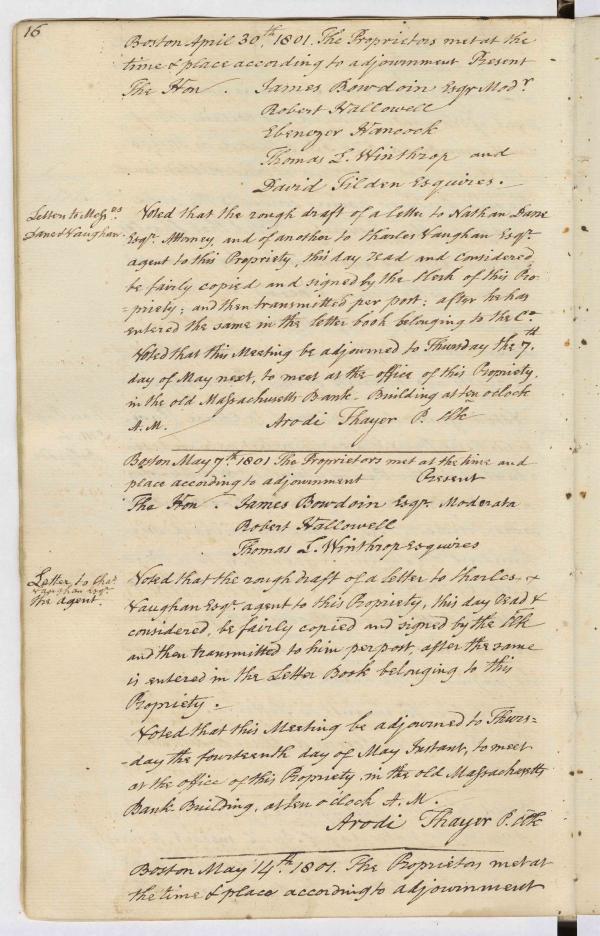 16
Boston April 30th. 1801. The Proprietors met at the
time & place according to adjournment Present
The Hon. James Bowdoin Esqr Modr
Robert Hallowell
Ebenezer Hancock
Thomas L. Winthrop and
David Tilden Esquires.
Letters to Messrs
Dane & Vaughan.
Voted that the rough draft of a letter to Nathan Dane
Esqr. Attorney, and of another to Charles Vaughan Esqr.
agent to this Propriety, this day read and considered
be fairly copied and signed by the Clerk of this Pro-
-priety; and then transmitted per post; after he has
entered the same in the letter book belonging to the Co.
Voted that this Meeting be adjourned to Thursday the 7th.
day of May next, to meet at the office of this Propriety,
in the old Massachusetts Bank-Building at ten oclock
A.M. Arodi Thayer P. Clk
Boston May 7th. 1801 The Proprietors met at the time and
place according to adjournment Present
The Hon. James Bowdoin Esqr. Moderata
Robert Hallowell
Thomas L. Winthrop Esquires
Letter to Chas
Vaughan Esqr.
the agent.
Voted that the rough draft of a letter to Charles
Vaughan Esqr. agent to this Propriety, this day read &
considered, be fairly copied and signed by the Clk
and then transmitted to him per post, after the same
is entered in the Letter Book belonging to this
Propriety.
Voted that this Meeting be adjourned to Thurs=
-day the fourteenth day of May Instant, to meet
at the office of this Propriety in the old Massachusetts
Bank Building, at ten o'clock A.M.
Arodi Thayer P. Clk
Boston May 14th. 1801. The Proprietors met at
the time & place according to adjournment